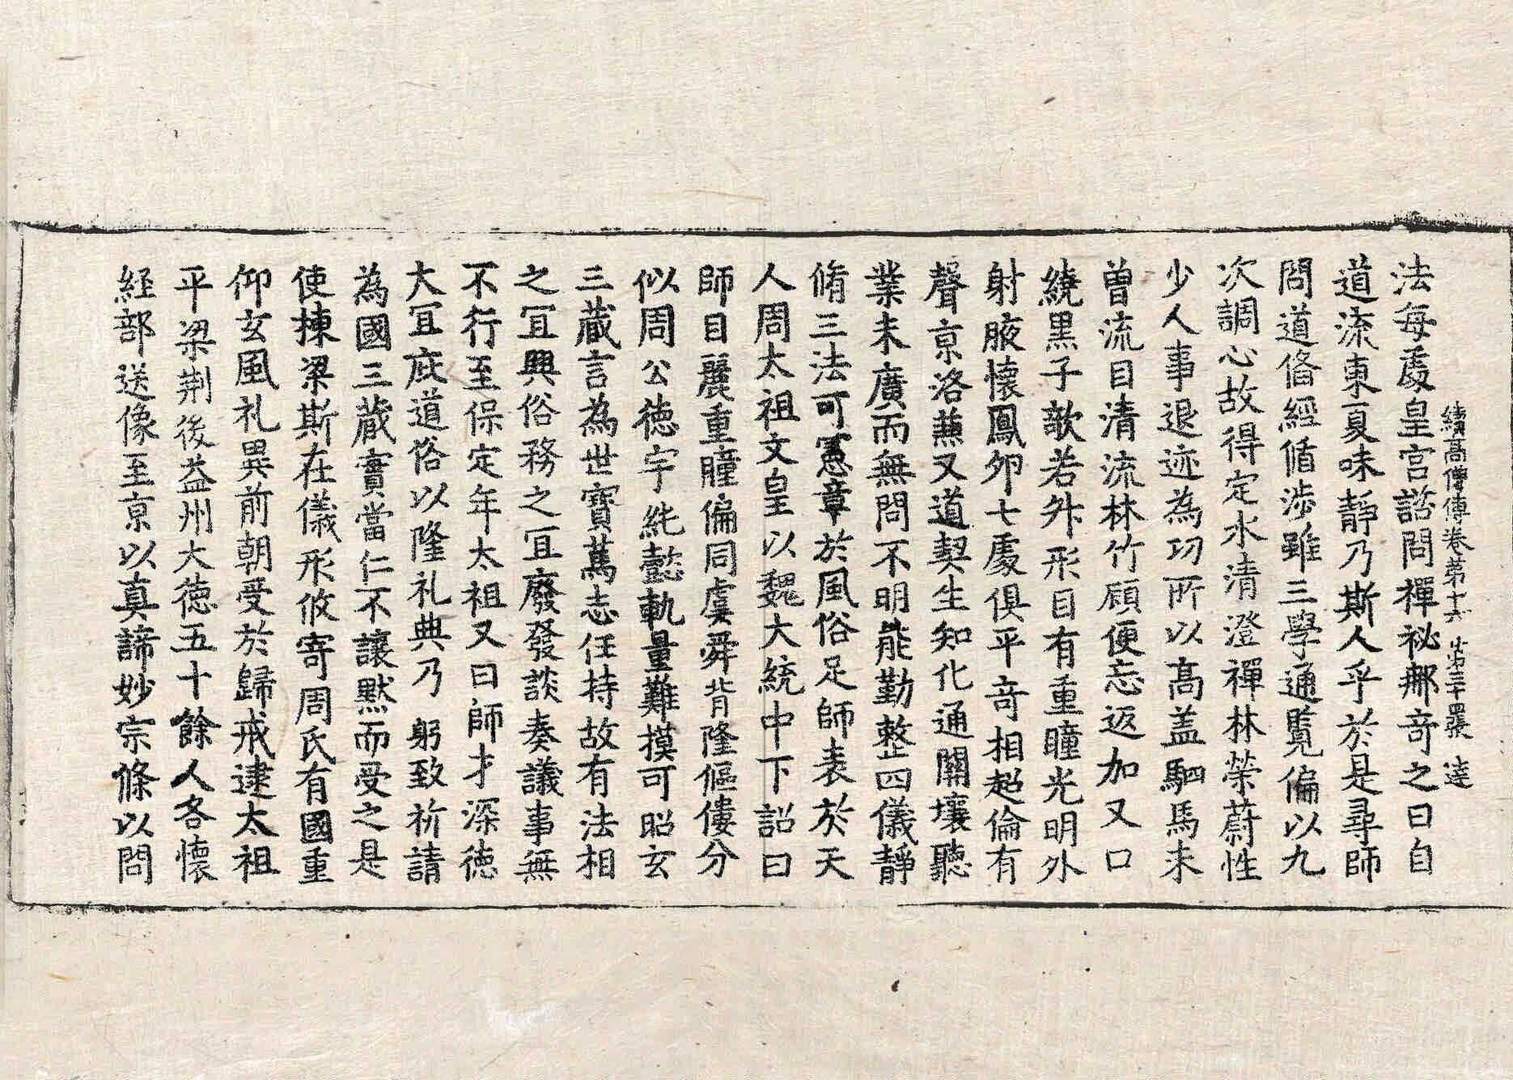 續高僧傳卷第十六 第三十四張 達
法每處皇宮諮問禪祕那奇之曰自
道流東夏味靜乃斯人乎於是尋師
問道俻經循涉雖三學通覽偏以九
次調心故得定水清澄禪林榮蔚性
少人事退迹為功所以高盖駟馬未
曽流目清流林竹顧便忘返加又口
繞黒子欹若升形目有重瞳光明外
射腋懷鳳夘七處俱平竒相超倫有
聲京洛兼又道契生知化通關壤聽
業未廣而無問不明能勤整四儀靜
脩三法可憲章於風俗足師表於天
人周太祖文皇以魏大統中下詔曰
師目麗重瞳偏同虞舜背隆傴僂分
似周公徳宇純懿軌量難摸可昭玄
三蔵言為世寶篤志任持故有法相
之冝興俗務之冝廢發談奏議事無
不行至保定年太祖又曰師才深徳
大冝庇道俗以隆礼典乃躬致祈請
為國三蔵實當仁不讓黙而受之是
使揀梁斯在儀形攸寄周氏有國重
仰玄風礼異前朝受於歸戒逮太祖
平梁荆後益州大徳五十餘人各懷
経部送像至京以真諦妙宗條以問